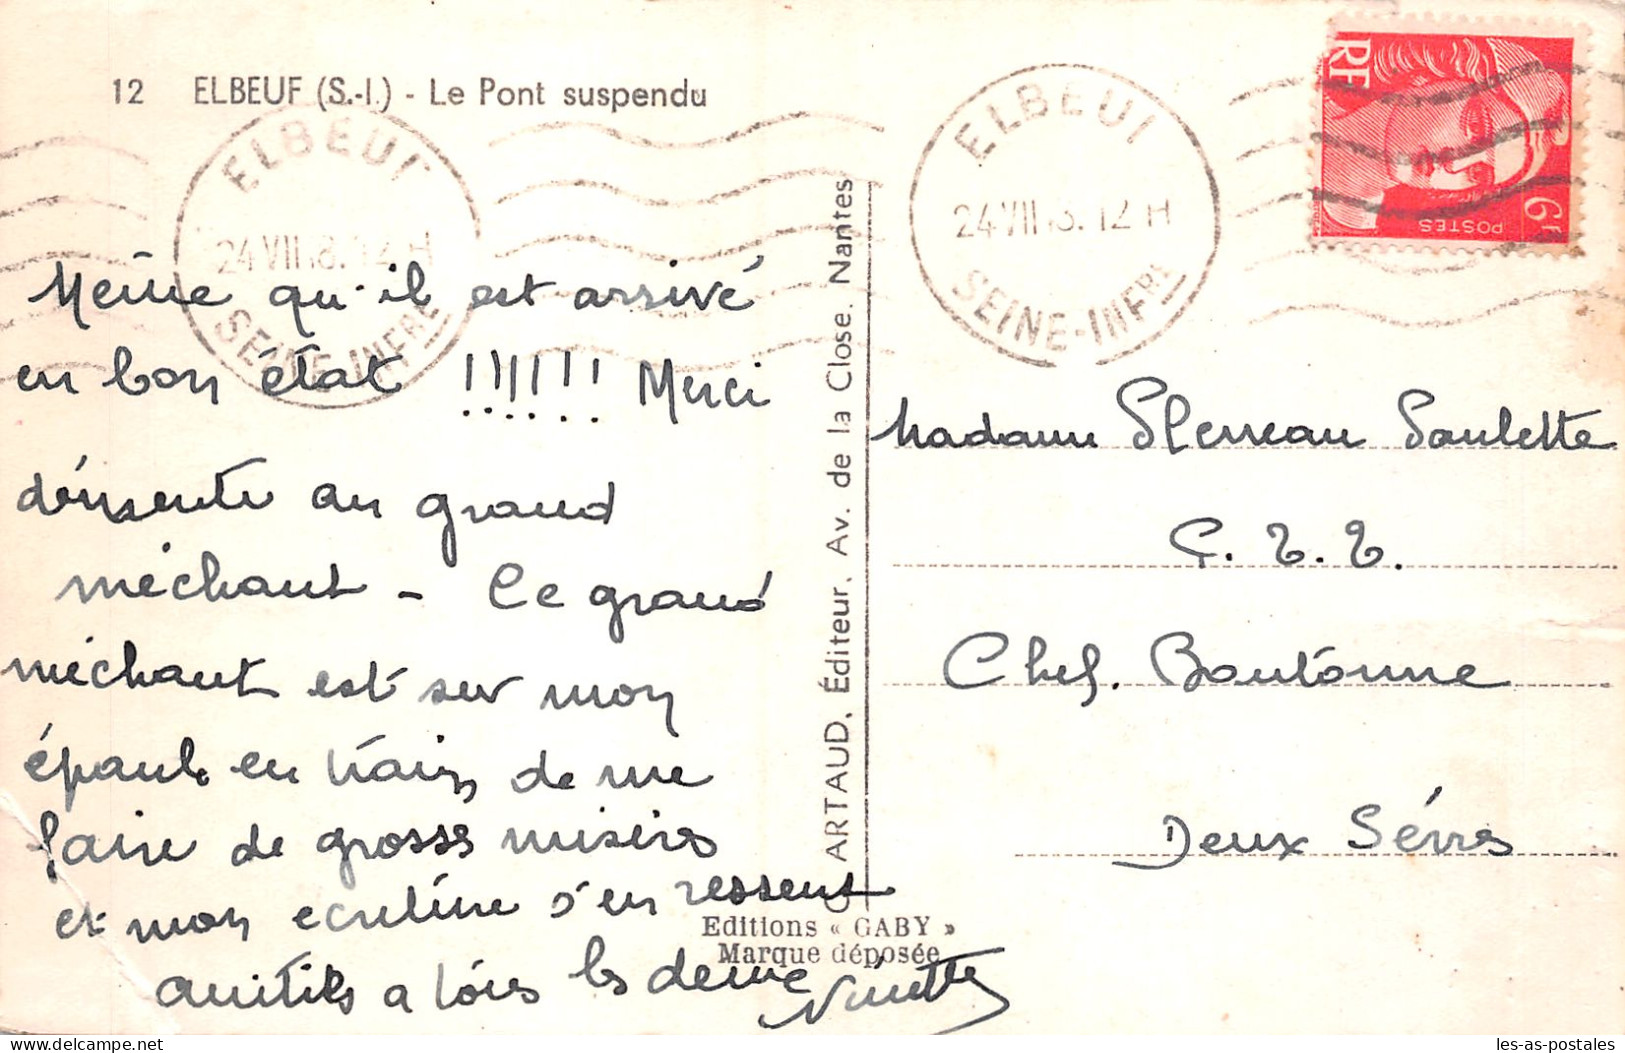 12 ELBEUF (S.-I.) - Le Pont suspendu
ELBEUF
24 VII 8. 12 H
SEINE-INFRE
ELBEUF
24 VII 8. 12 H
SEINE-INFRE
RF
POSTES
6F
Même qu'il est arrivé
en bon état !!!!!! Merci
au grand
méchant - Ce grand
méchant est sur mon
épaule en train de me
faire de grosses misères
et mon s'en ressent
amitiés a tous les deux
Ninette
G ARTAUD, Éditeur. Av. de la Close. Nantes
Editions « GABY »
Marque déposée
Madame Paulette
P. T. T.
Chef. Boutonne
Deux Sévres
les-as-postales
delcampe.net